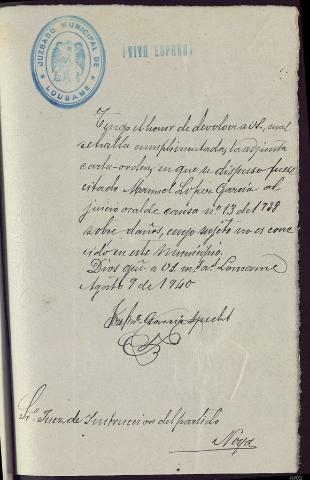 JUZGADO MUNICIPAL DE
LOUSAME
¡VIVA ESPAÑA!
Tengo el honor de devolver a VS., cual
se halla cumplimentada, la adjunta
carta-orden, en que se dispuso fuese
citado Manuel Lopez Garcia al
juicio oral de causa nº 13 de 1938
sobre daños, cuyo sujeto no es cono
cido en este Municipio.
Dios gu.e a VS m.s a.s Lousame
Agosto 9 de 1940
Garcia
Sr. Juez de Instruccion del partido
Noya